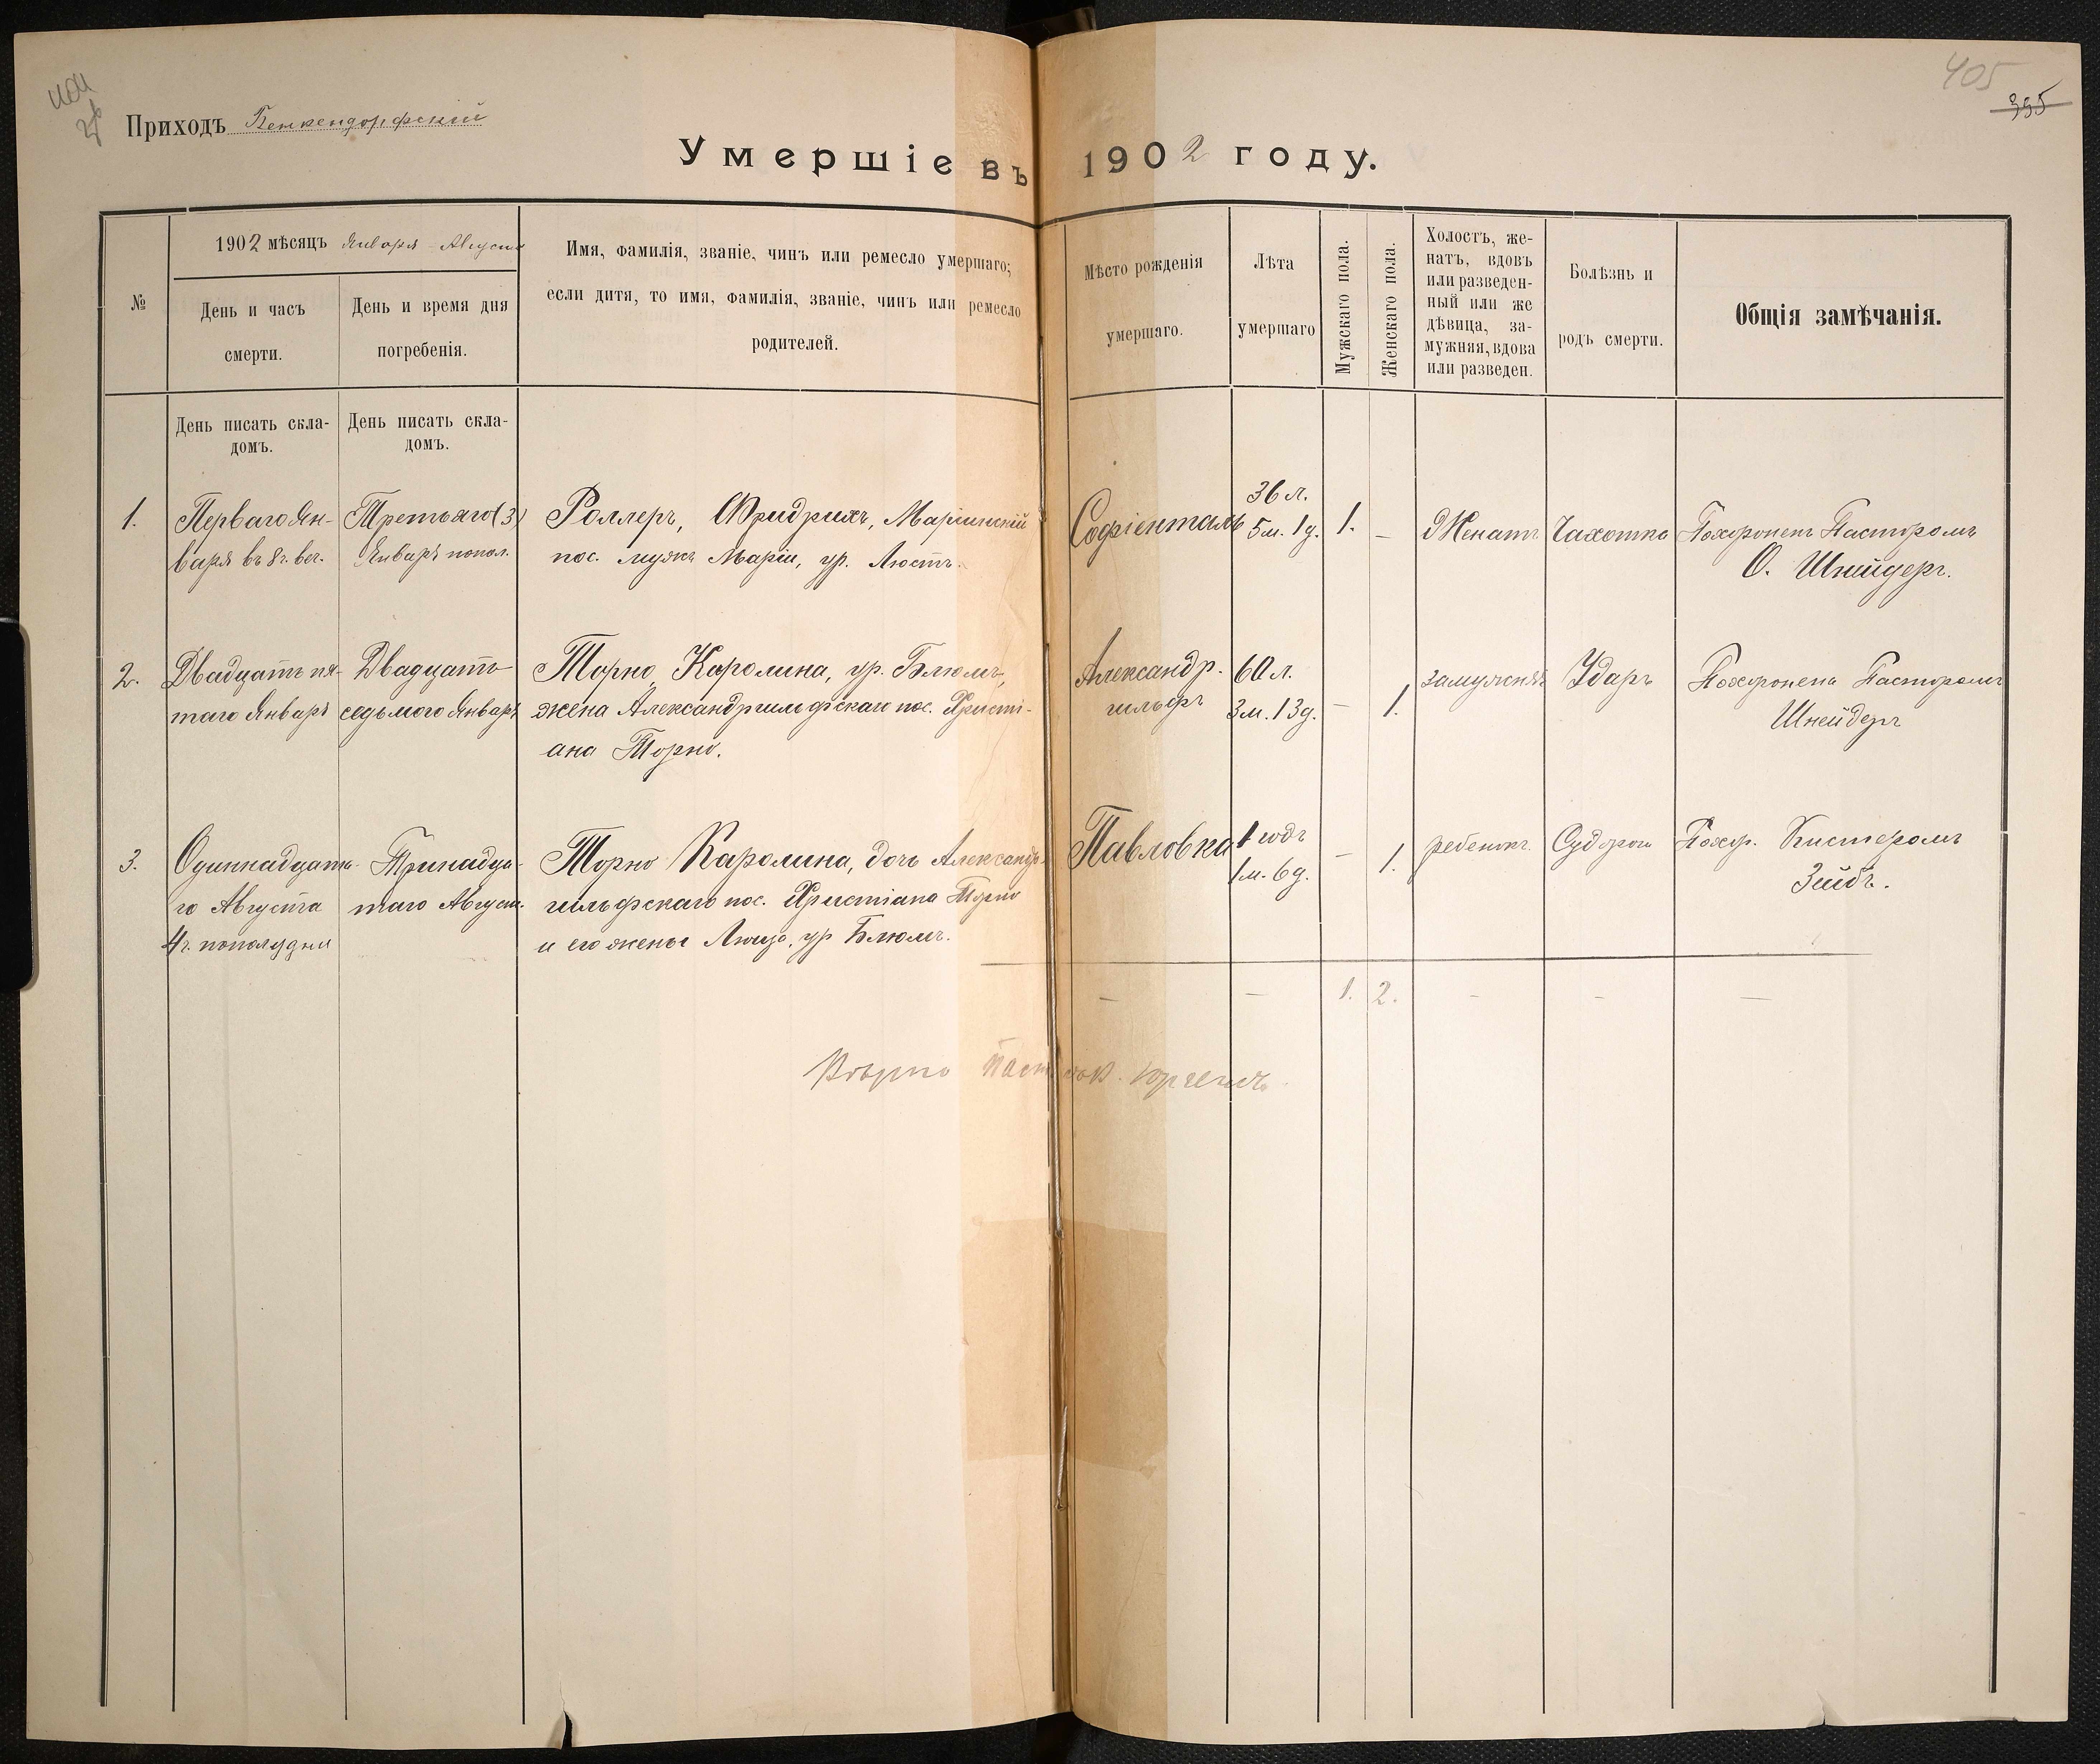 405
395
Приходъ Бенкендорфскій
Умершіе въ 1902 году.
№
1902 мѣсяцъ Января Августа
День и часъ
смерти.
День и время дня
погребенія.
Имя, фамилія, званіе, чинъ или ремесло умершаго;
если дитя, то имя, фамилія, званіе, чинъ или ремесло
родителей.
Мѣсто рожденія
умершаго.
Лѣта
умершаго
Мужскаго пола.
Женскаго пола.
Холостъ, же-
натъ, вдовъ
или разведен-
ный или же
дѣвица, за-
мужняя, вдова
или разведен.
Болѣзнь и
родъ смерти.
Общія замѣчанія.
День писать скла-
домъ.
День писать скла-
домъ.
1.
Перваго Ян-
варя въ 8 г. веч.
Третьяго (3)
Январѣ попол.
Роллеръ, Фридрихъ, Маріинскій
пос. мужъ Маріи, ур. Люстъ.
Софіенталь
36 л.
5 м. 1 д.
1.
–
Женатъ
Чахотка
Похороненъ Пасторомъ
О. Шнейдеръ.
2.
Двадцать пя-
таго Январѣ
Двадцать
седьмого Январѣ
Торно, Каролина, ур. Блюмъ,
жена Александргильфскаго пос. Христі-
ана Торно.
Александр.
гильфъ
60 л.
3 м. 13 д.
–
1.
замужняя
Ударъ
Похоронена Пасторомъ
Шнейдеръ
3.
Одиннадцата-
го Августа
4 г. пополудни
Тринадца-
таго Август.
Торно Каролина, дочь Александр-
гильфскаго пос. Христіана Торно
и его жены ур Блюмъ.
Павловка
1 годъ
1 м. 6 д.
–
1.
ребенокъ.
Судороги
Похор. Кистеромъ
Зейбъ.
–
–
1.
2.
–
–
–
Вѣрно Паст.